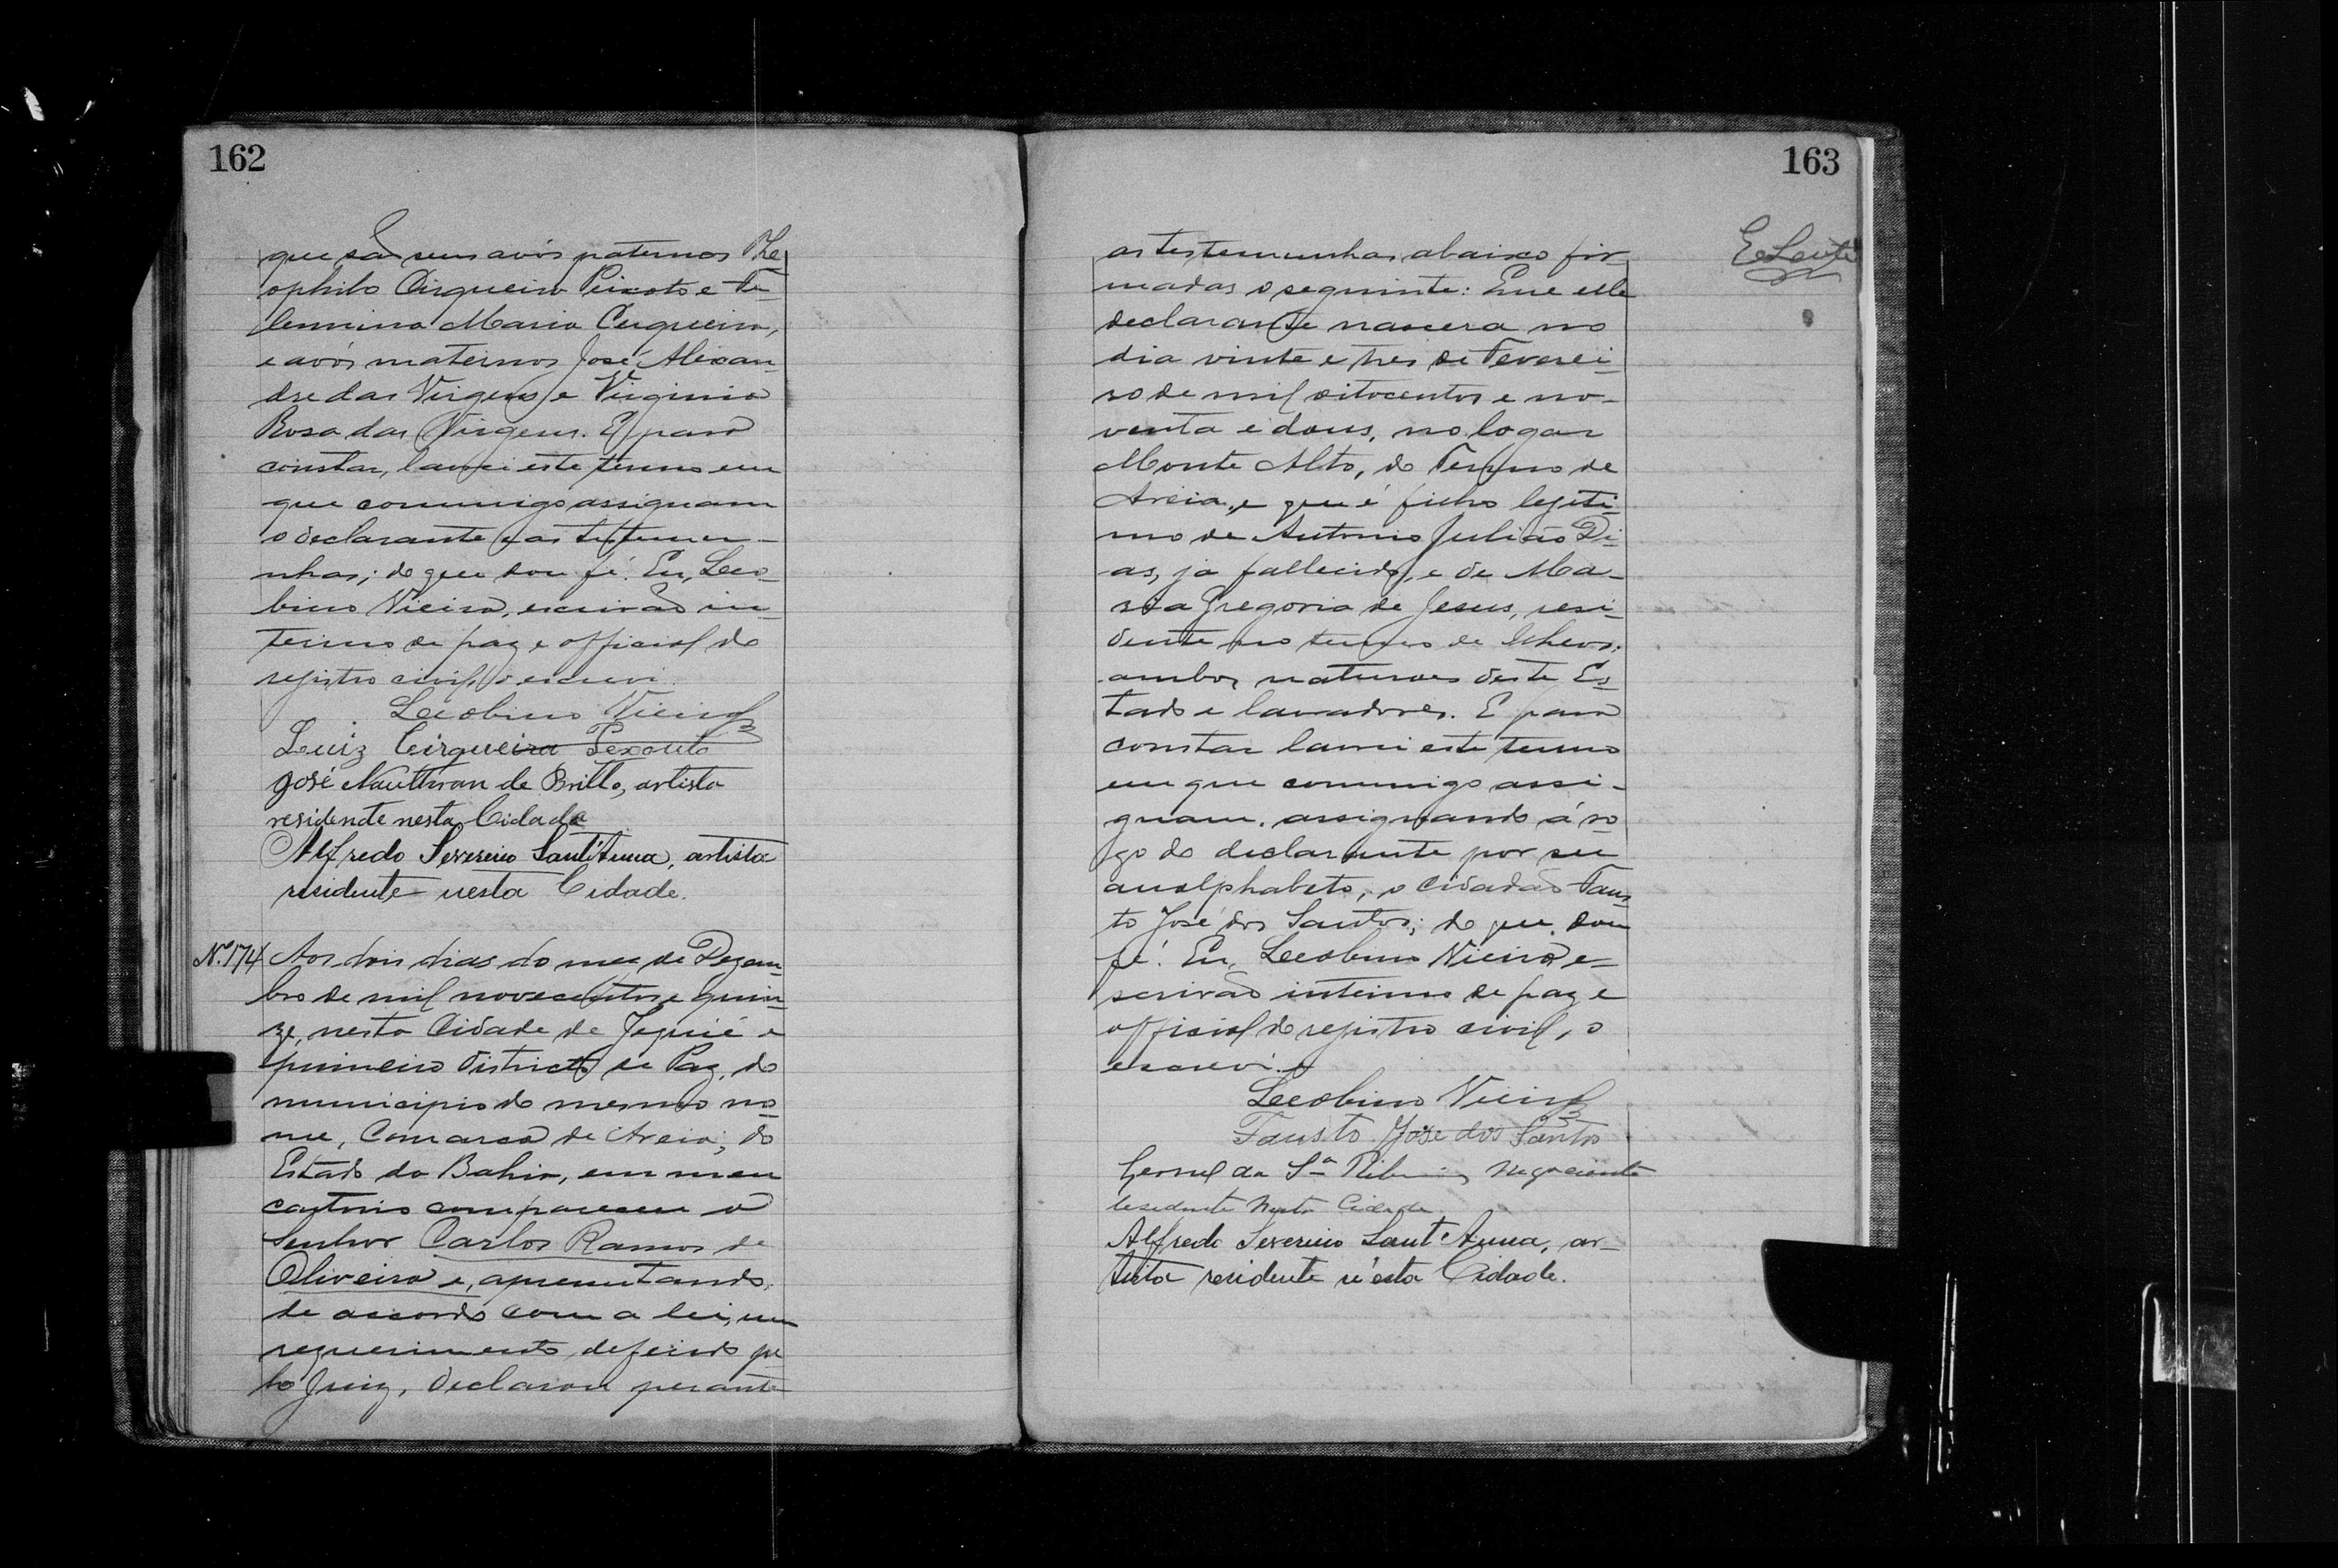 162
que são seus avós paternos The
ophilo Cirqueira Peixoto e Fe
lermina Maria Cerqueira,
e avós maternos José Alexan
dre das Virgens e Virginia
Rosa das Virgens. E para
constar, lavrei este termo em
que commigo assignam
o declarante e as testemu-
nhas; do que dou fé. Eu, Leo
bino Vieira, escrivão in
terino de paz e official do
registro civil, o escrevi.
Leobino Vieira
Luiz Cirqueira Pexouto
José de Britto, artista
residente nesta Cidade
Alfredo Severino Sant'Anna, artista
residente nesta Cidade.
Nº 174 Aos dois dias do mez de Dezem
bro de mil novecentos e quin
ze, nesta Cidade de Jequié e
primeiro Districto de Paz, do
municipio do mesmo no
me, Comarca de Areia, do
Estado da Bahia, em meu
cartorio compareceu o
Senhor Carlos Ramos de
Oliveira e, apresentando,
de accordo com a lei, um
requerimento deferido pe
lo Juiz, declarou perante
163
as testemunhas abaixo fir
madas o seguinte: Que elle
declarante nascera no
dia vinte e tres de Feverei
ro de mil oitocentos e no-
venta e dous, no logar
Monte Alto, do Termo de
Areia, e que é filho legiti
mo de Antonio Julião Di
as, ja fallecido, e de Ma-
ria Gregoria de Jesus, resi
dente no termo de Ilheos,
ambos naturaes deste Es
tado e lavradores. E para
constar lavrei este termo
em que commigo assi-
gnam, assignando á ro
go do declarante por ser
analphabeto, o cidadão Faus
to José dos Santos; do que dou
fé. Eu, Leobino Vieira e-
scrivão interino de paz e
official do registro civil, o
escrevi.
Leobino Vieira
Fausto José dos Santos
da Sª negociante
residente nesta Cidade
Alfredo Severino Sant'Anna, ar-
tista residente n'esta Cidade.